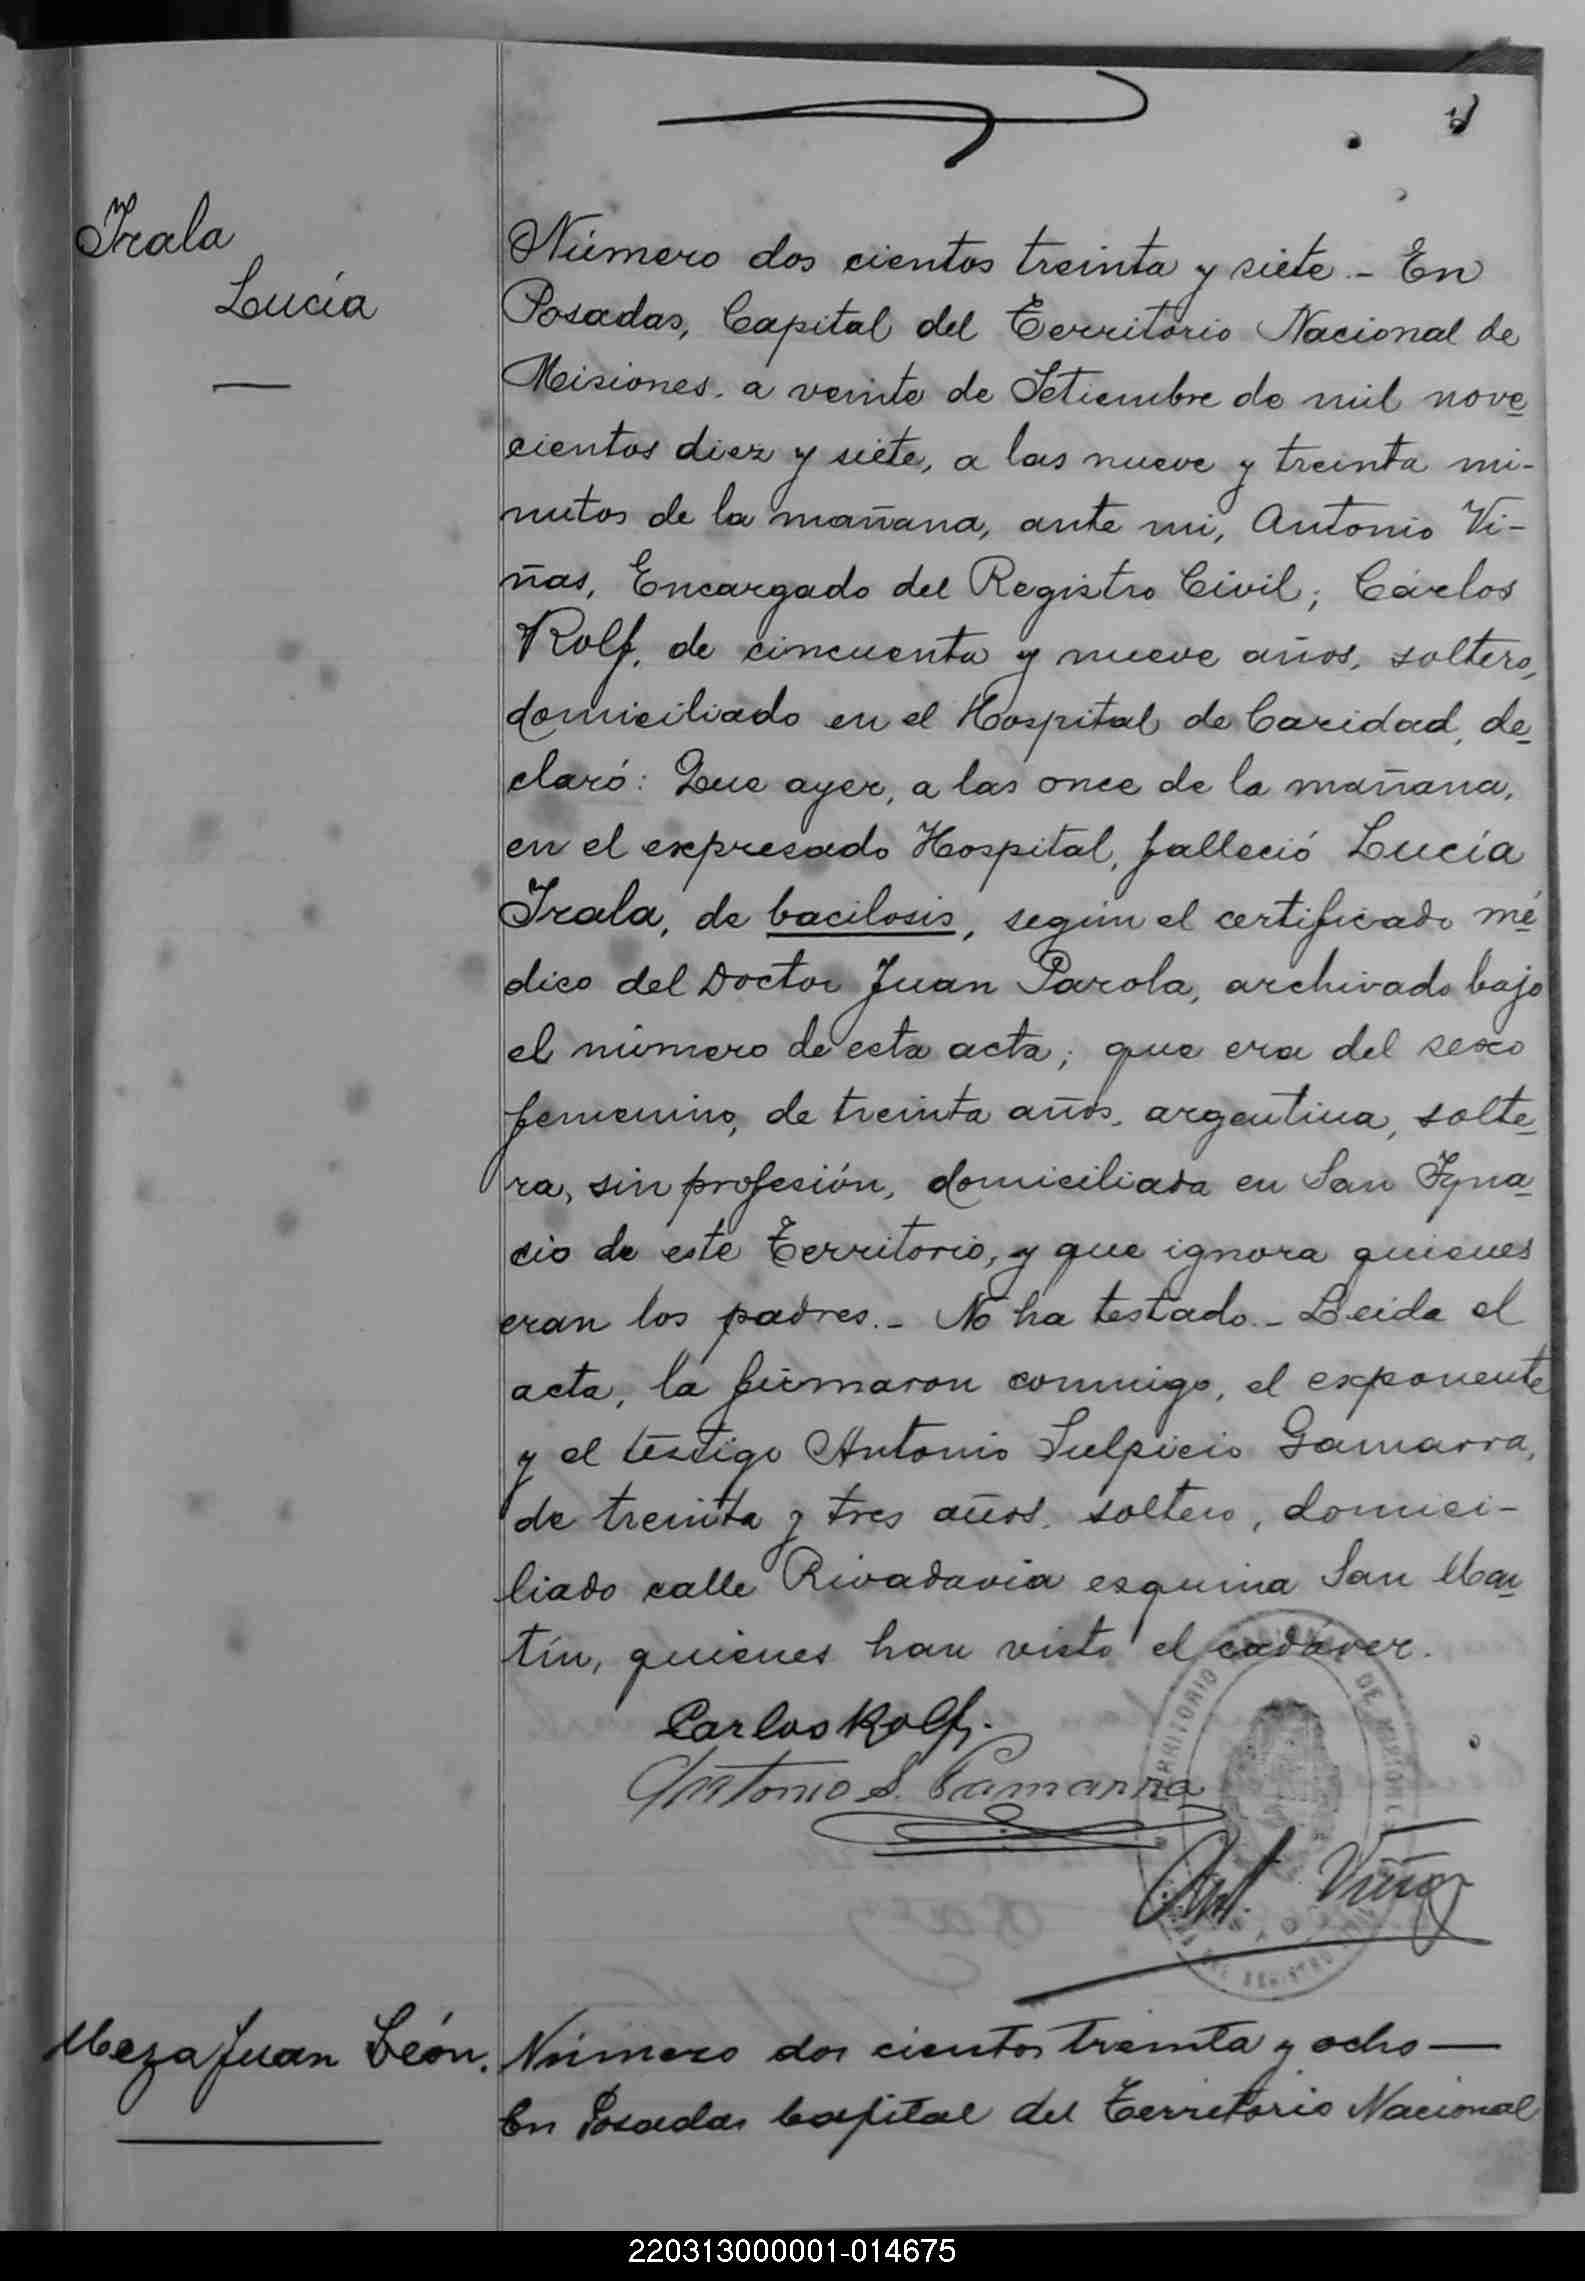 Irala
Lucía
Número dos cientos treinta y siete.- En
Posadas, Capital del Territorio Nacional de
Misiones, a veinte de Setiembre de mil nove
cientos diez y siete, a las nueve y treinta mi-
nutos de la mañana, ante mi, Antonio Vi-
ñas, Encargado del Registro Civil; Cárlos
Rolf, de cincuenta y nueve años, soltero,
domiciliado en el Hospital de Caridad, de
claró: Que ayer, a las once de la mañana,
en el expresado Hospital, falleció Lucía
Irala, de bacilosis, según el certificado mé
dico del Doctor Juan Parola, archivado bajo
el número de esta acta; que era del sexo
femenino, de treinta años, argentina, solte
ra, sin profesión, domiciliada en San Igna
cio de este Territorio, y que ignora quienes
eran los padres.- No ha testado.- Leida el
acta, la firmaron conmigo, el exponente
y el testigo Antonio Sulpicio Gamarra,
de treinta y tres años, soltero, domici-
liado calle Rivadavia esquina San Mar
tín, quienes han visto el cadáver.
Carlos Rolf.
Antonio S. Gamarra
Ant. Viñas
TERRITORIO NACIONAL DE MISIONES
DEL REGISTRO CIVIL
Meza Juan León.
Número dos cientos treinta y ocho —
En Posadas Capital del Territorio Nacional
220313000001-014675